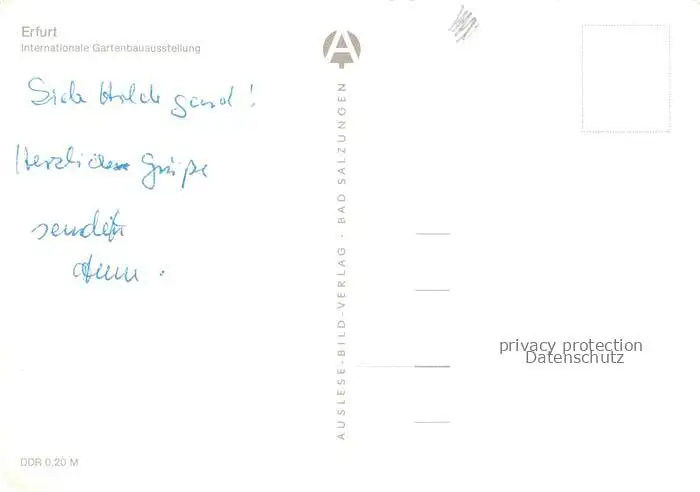 Erfurt
Internationale Gartenbauausstellung
Herzliche Grüße
sendet
AUSLESE-BILD-VERLAG · BAD SALZUNGEN
privacy protection
Datenschutz
DDR 0,20 M